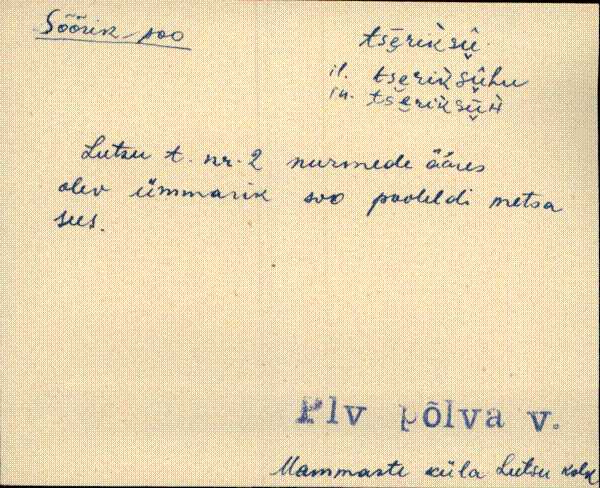 Sõõrik-soo
tsẹriksü̬
il. tsẹriksü̬hu
in. tsẹriksü̬h
Lutsu t. nr. 2 nurmede ääres
olev ümmarik soo pooleldi metsa
sees.
Plv põlva v.
Mammaste küla Lutsu kolk